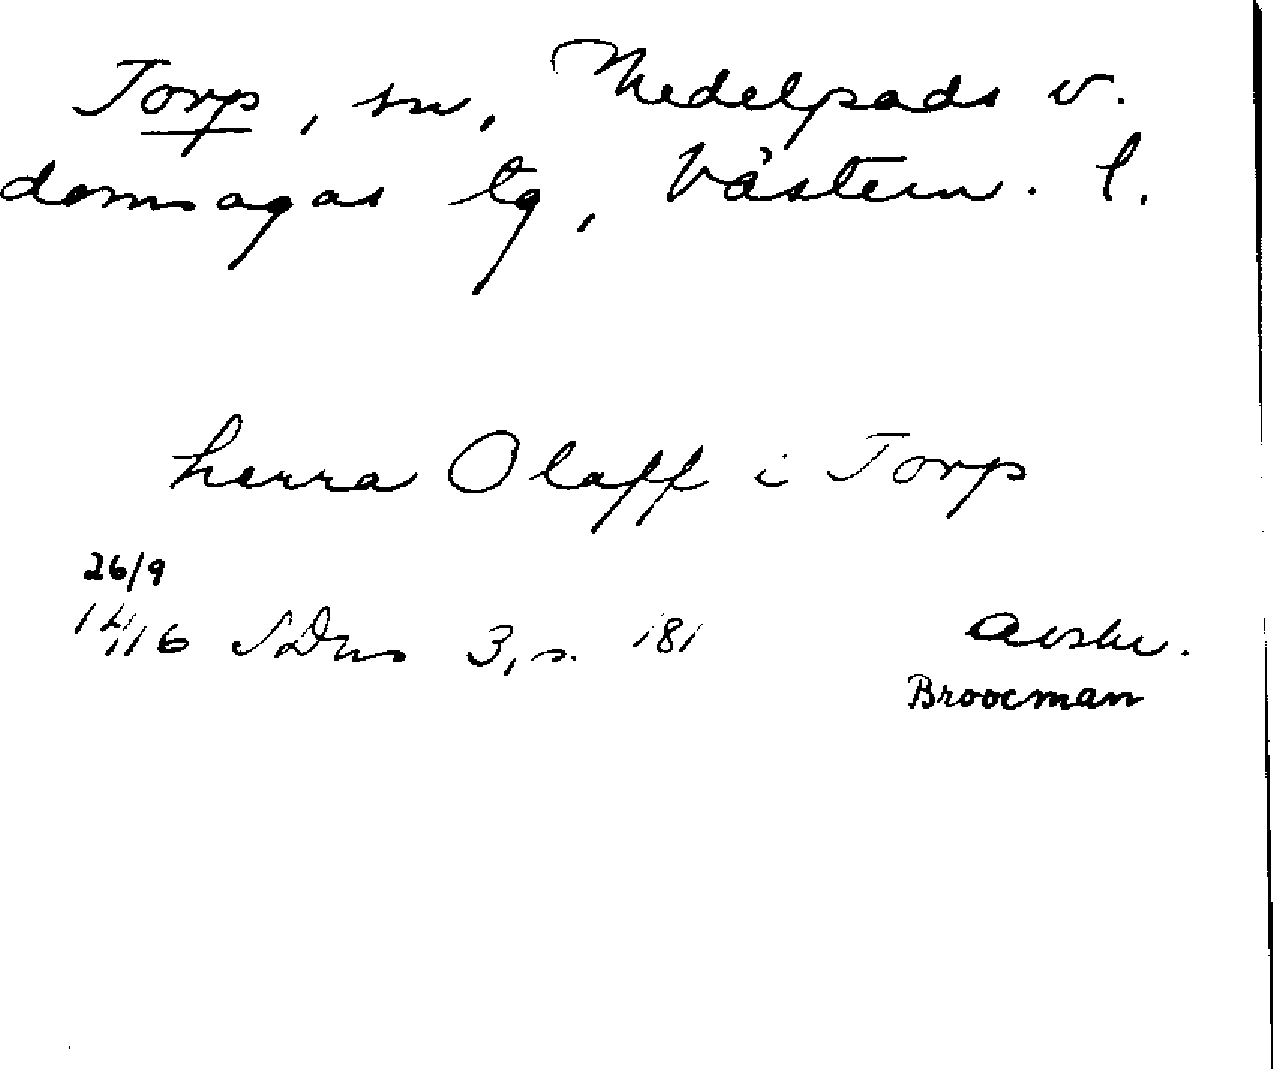 Torp, sn, Medelpads v.
domsagas tg, Västern. l.
herra Olaff i Torp
26/9
1416 SDns 3, s. 181
avskr.
Broocman